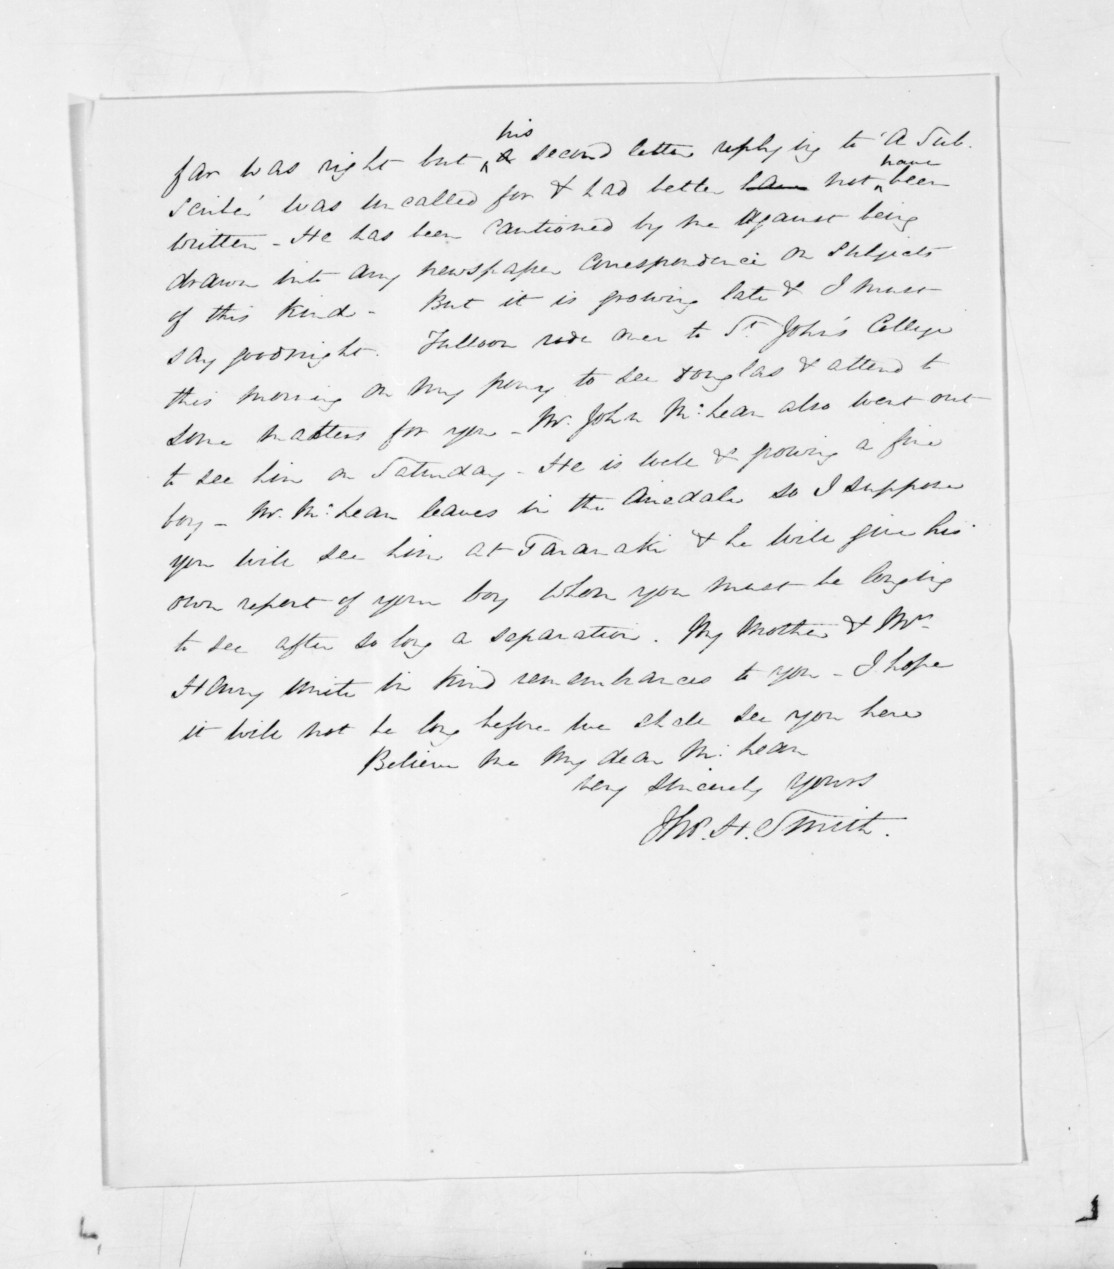 far was right but his second letter replying to 'A Sub.
scriber' was uncalled for & had better have not have been
written - He has been cautioned by me against being
drawn into any newspaper correspondence on subjects
of this kind - But it is growing late & I must
say goodnight. Fulloon rode over to St. John's College
this morning on my pony to see Douglas & attend to
some matters for you - Mr. John McLean also went out
to see him on Saturday - He is well & growing a fine
boy - Mr. McLean leaves in the Airedale so I suppose
you will see him at Taranaki & he will give his
own report of your boy whom you must be longing
to see after so long a separation. My Mother & Mrs
Henry unite in kind remembrances to you - I hope
it will not be long before we shall see you here
Believe me My dear McLean
very sincerely yours
Thos. H. Smith.